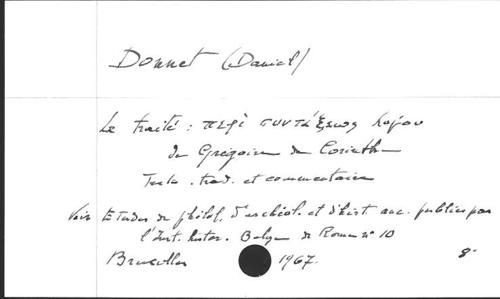 Donnet (Daniel)
Le traité : περὶ συντάξεως λόγου
de Grégoire de Corinthe
Texte . trad. et commentaire
Voir Etudes de philol. d'archéol. et d'hist. anc. publiées par
l'Inst. histor. Belge de Rome n° 10
Bruxelles 1967. 8°